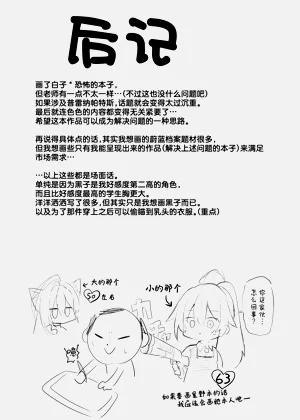 后记
画了白子*恐怖的本子,
但老师有一点不太一样…(不过这也没什么问题吧)
如果涉及普雷纳帕特斯,话题就会变得太过沉重。
最后就连色色的内容都变得无关紧要了…
希望这本作品可以成为解决问题的一种思路。
再说得具体点的话,其实我想画的蔚蓝档案题材很多,
但我想画些只有我能呈现出来的作品(解决上述问题的本子)来满足
市场需求…
…以上这些都是场面话。
单纯是因为黑子是我好感度第二高的角色,
而且比好感度最高的学生胸更大。
洋洋洒洒写了很多,但其实只是我想画黑子而已。
以及为了那件穿上之后可以偷瞄到乳头的衣服。(重点)
大的那个
50
左右
小的那个
你这家伙…
怎么回事?
63
如果要画星野本的话
我应该会画纯本人吧—